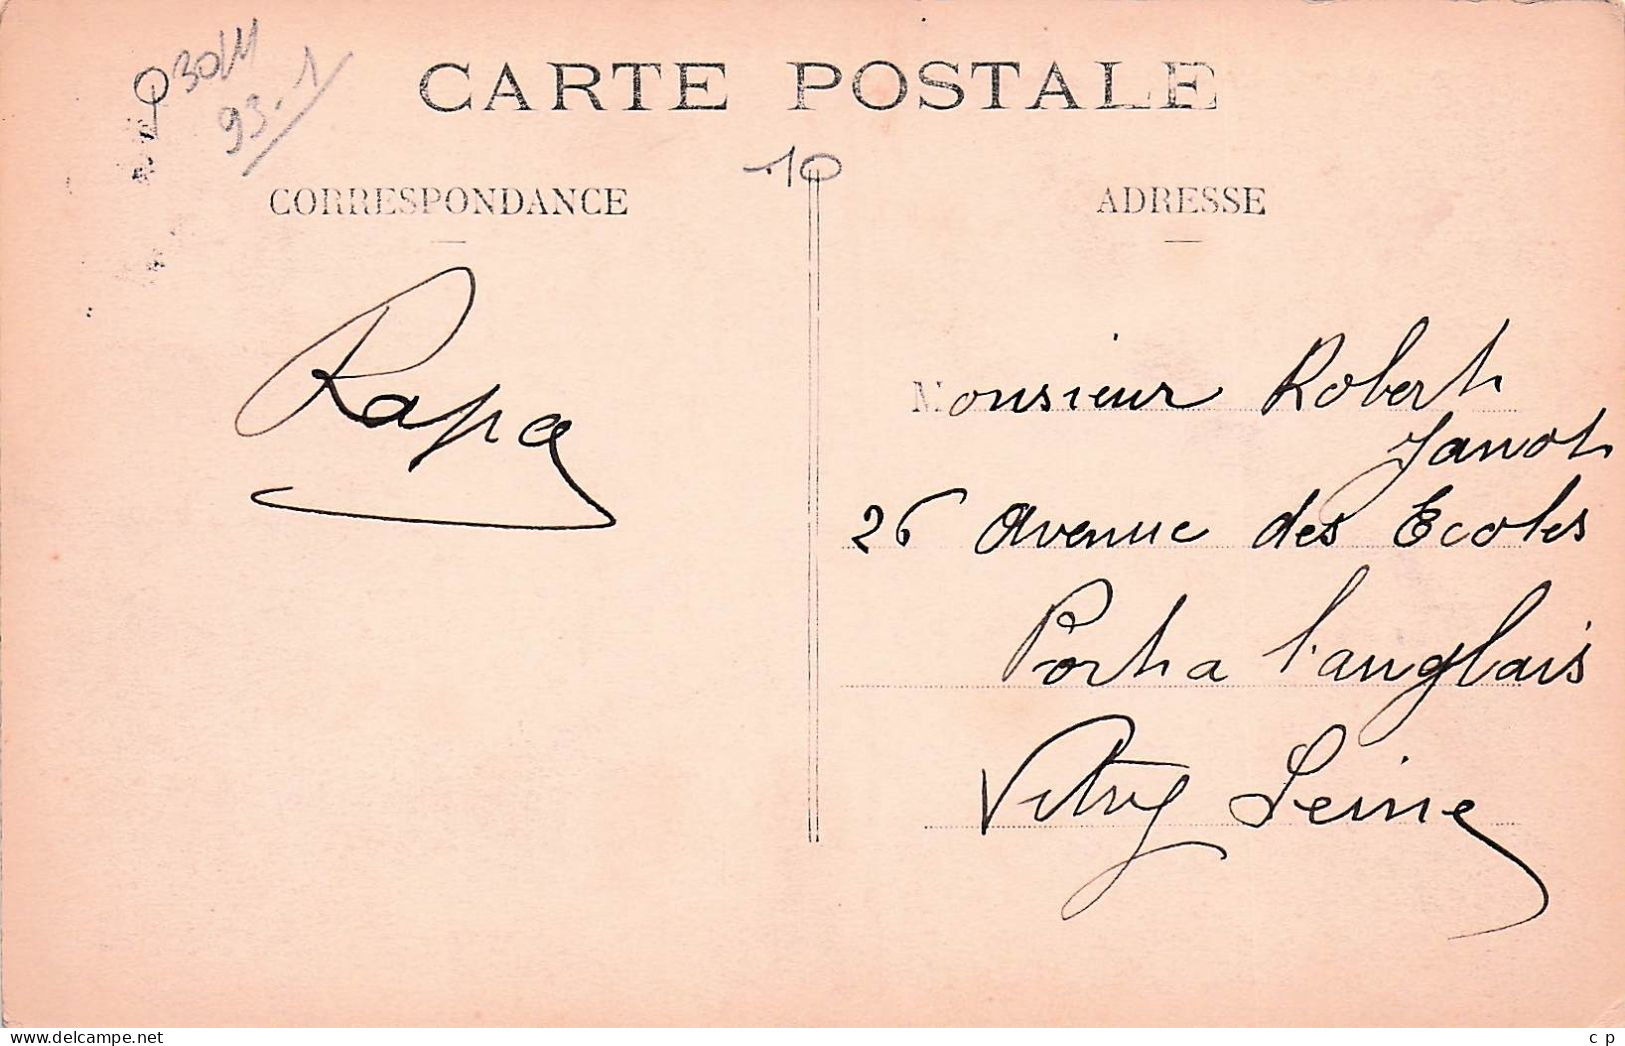 CARTE POSTALE
93-1
10
CORRESPONDANCE
ADRESSE
Rapa
Monsieur Robert
Janot
26 Avenue des Ecoles
Port a l'anglais
Vitry Seine
www.delcampe.net
cp